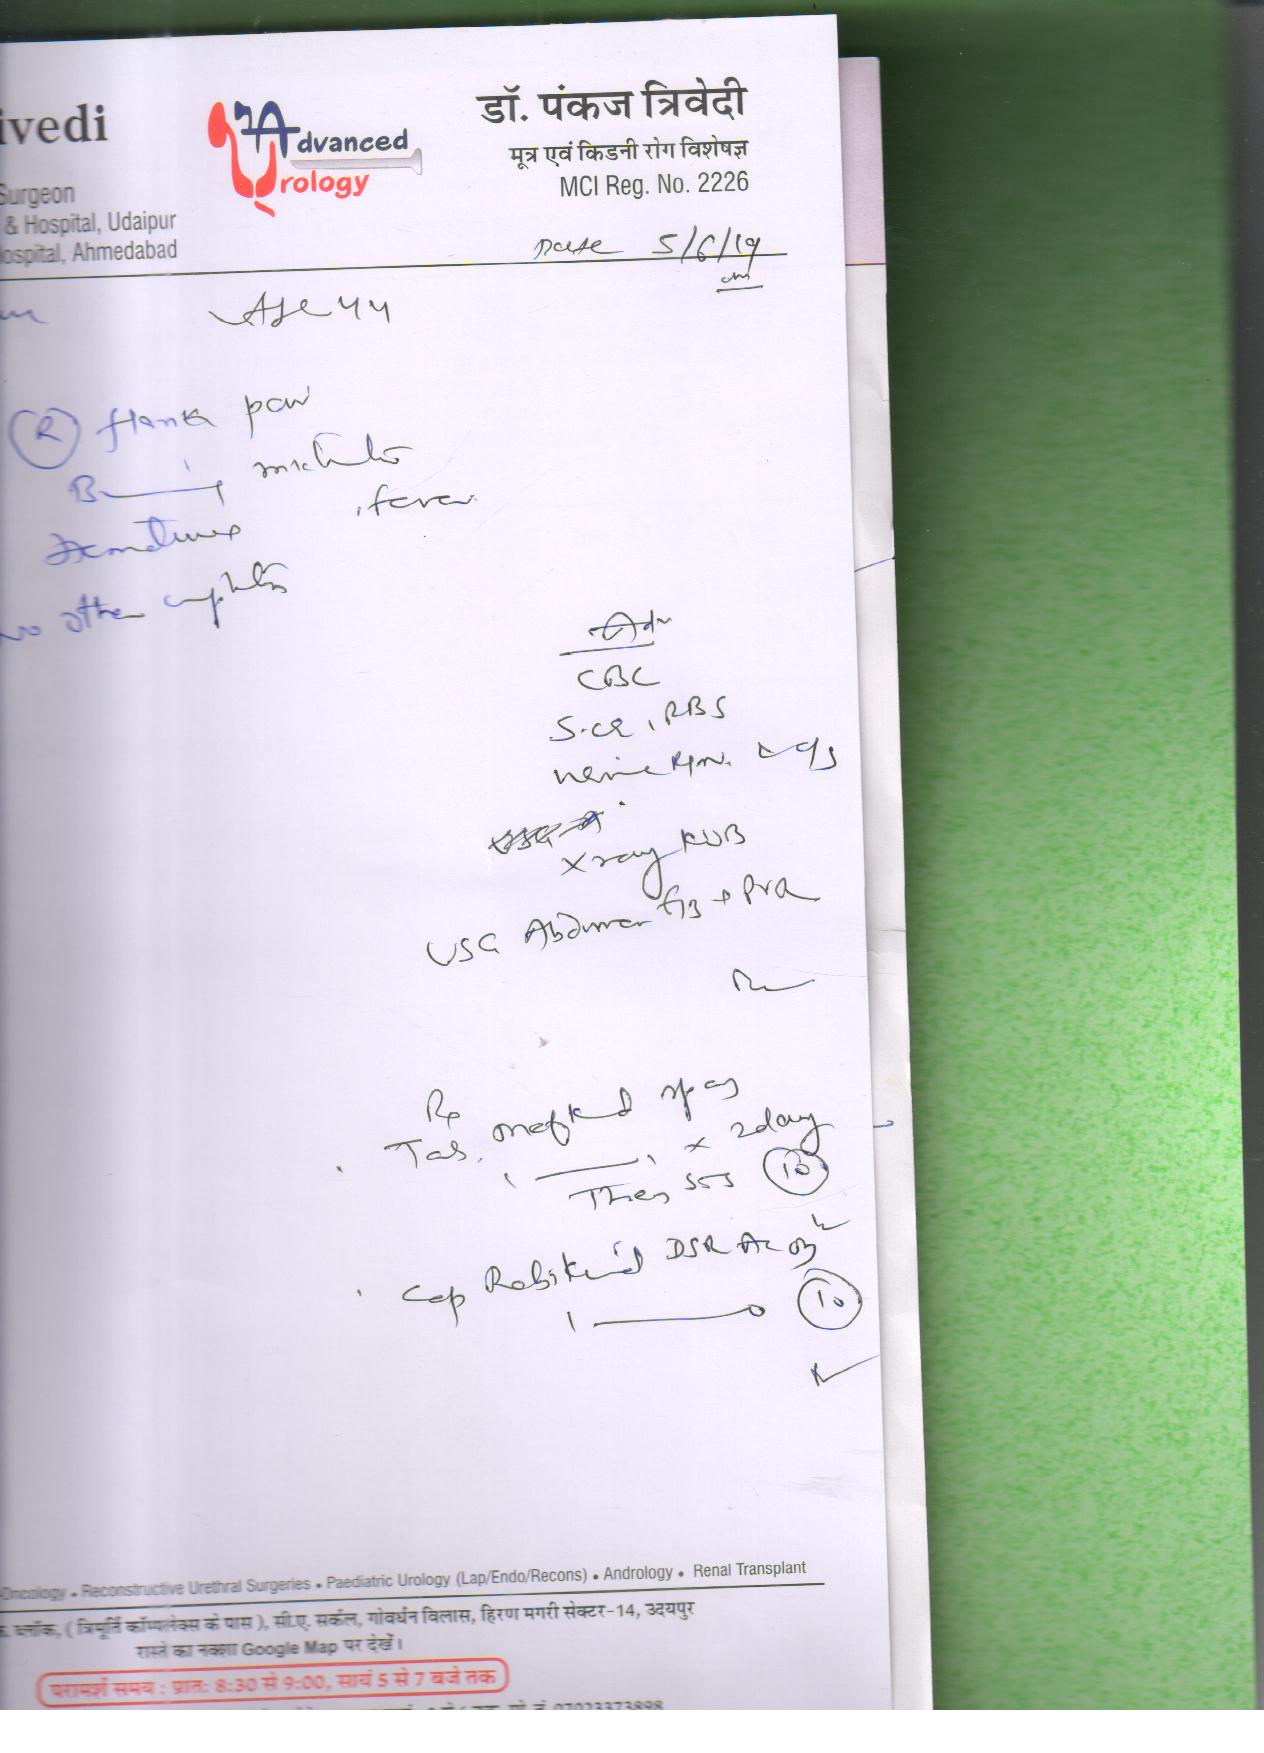 ivedi
Advanced
Urology
डॉ. पंकज त्रिवेदी
मूत्र एवं किडनी रोग विशेषज्ञ
MCI Reg. No. 2226
Surgeon
& Hospital, Udaipur
ospital, Ahmedabad
Date 5/6/19
Age 44
(R) flank pain
Burning micturition
Sometimes, fever
No other complaints
Adv
CBC
S.cr, RBS
Urine R/m. & c/s
Xray KUB
USG Abdomen + PVR
Rx
Tab. mefkind spas
1 — 1 x 2day
Then SOS (10)
Cap Rabikind DSR AC
1 — 0 (10)
Oncology • Reconstructive Urethral Surgeries • Paediatric Urology (Lap/Endo/Recons) • Andrology • Renal Transplant
ब्लॉक, (त्रिमूर्ति कॉम्पलेक्स के पास), सी.ए. सर्कल, गोवर्धन विलास, हिरण मगरी सेक्टर-14, उदयपुर
रास्ते का नक्शा Google Map पर देखें।
परामर्श समय : प्रातः 8:30 से 9:00, सायं 5 से 7 बजे तक
07023373898